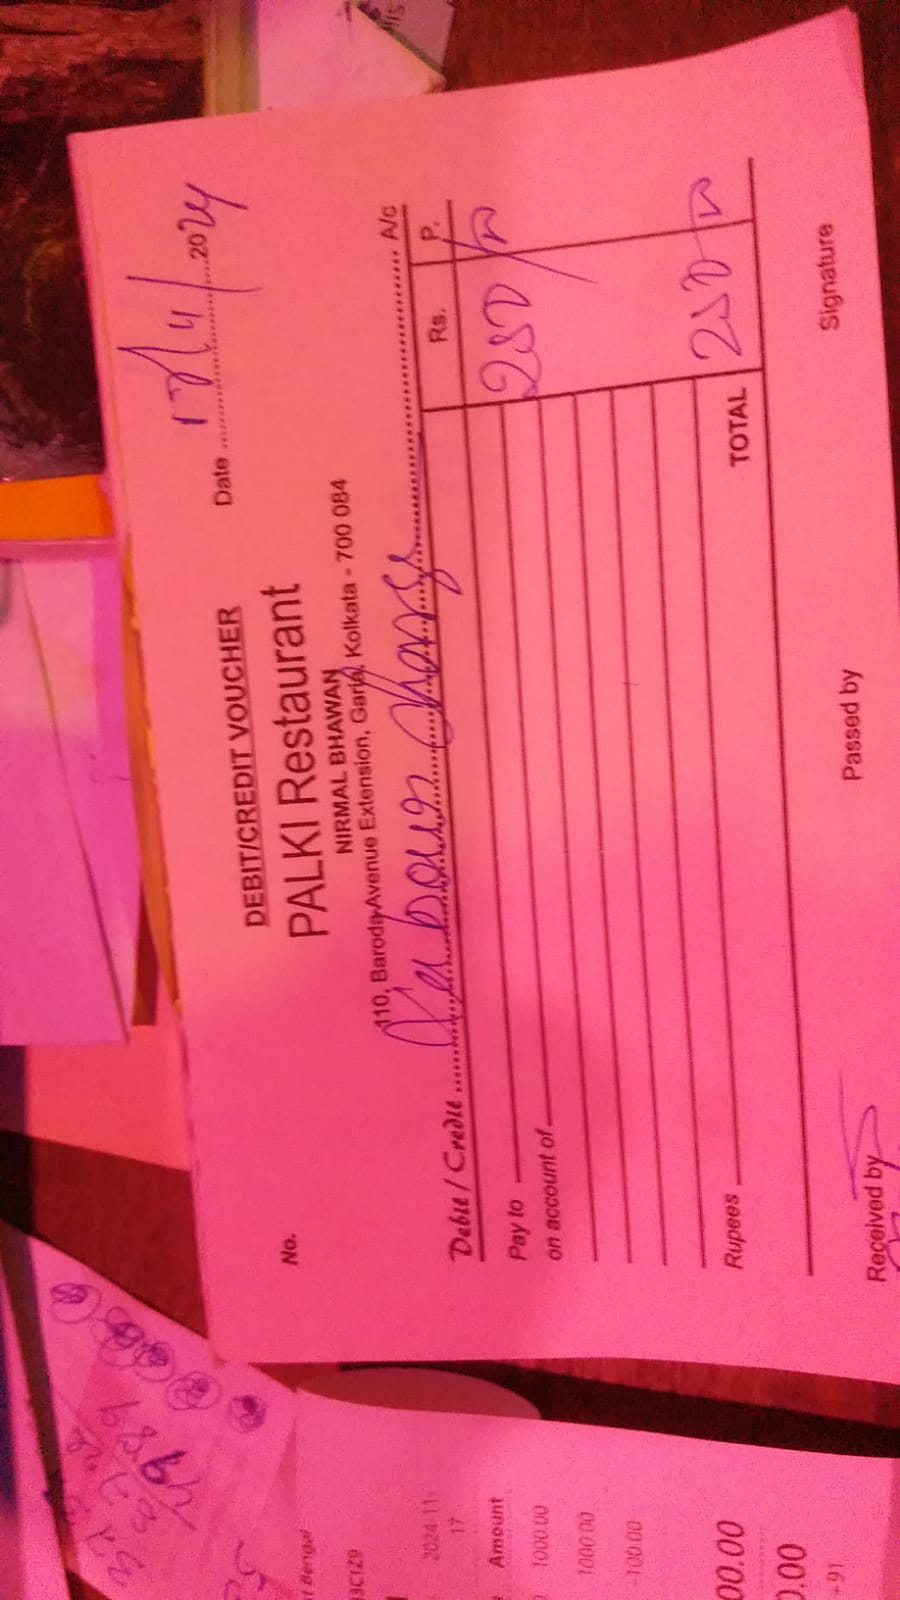 DEBIT/CREDIT VOUCHER
Date 17/11/2024
PALKI Restaurant
NIRMAL BHAWAN
110, Baroda Avenue Extension, Garia, Kolkata - 700 084
No.
Debit / Credit Labour Charge A/c
Rs. P.
Pay to 250/-
on account of
Rupees TOTAL 250/-
Received by Passed by Signature
t Bengal
3CIZ9
2024-11-
17
Amount
1000.00
1000.00
-100.00
00.00
0.00
+91